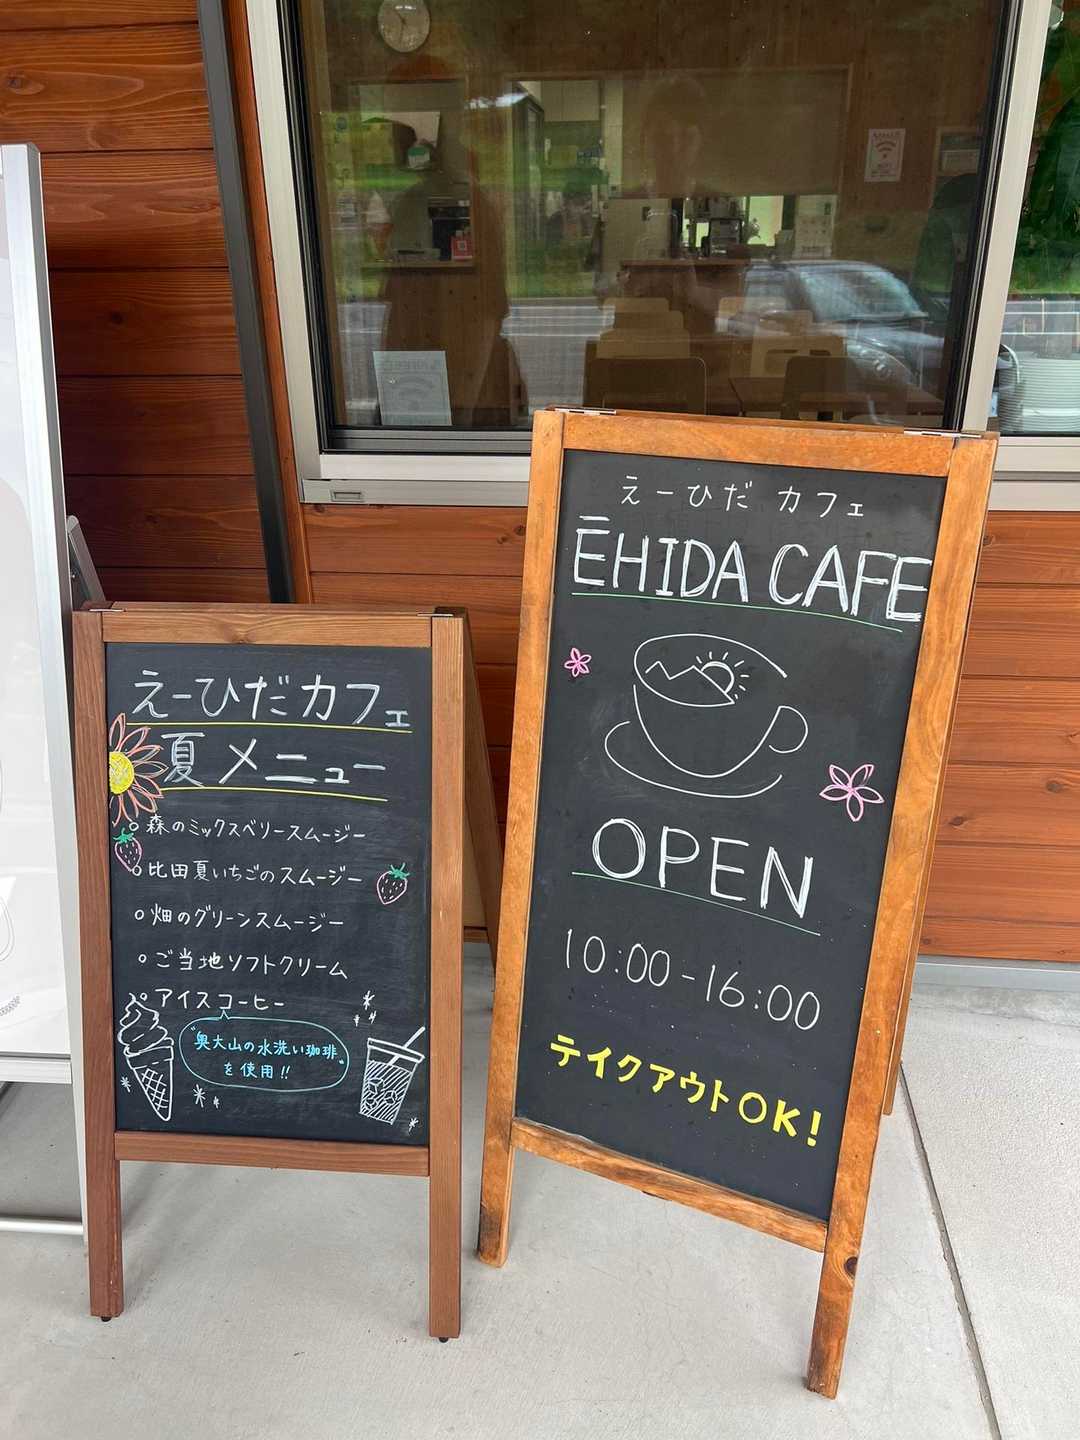 えーひだカフェ
夏メニュー
○森のミックスベリースムージー
○比田夏いちごのスムージー
○畑のグリーンスムージー
○ご当地ソフトクリーム
○アイスコーヒー
"奥大山の水洗い珈琲"
を使用!!
えーひだ カフェ
ĒHIDA CAFE
OPEN
10:00-16:00
テイクアウトOK!